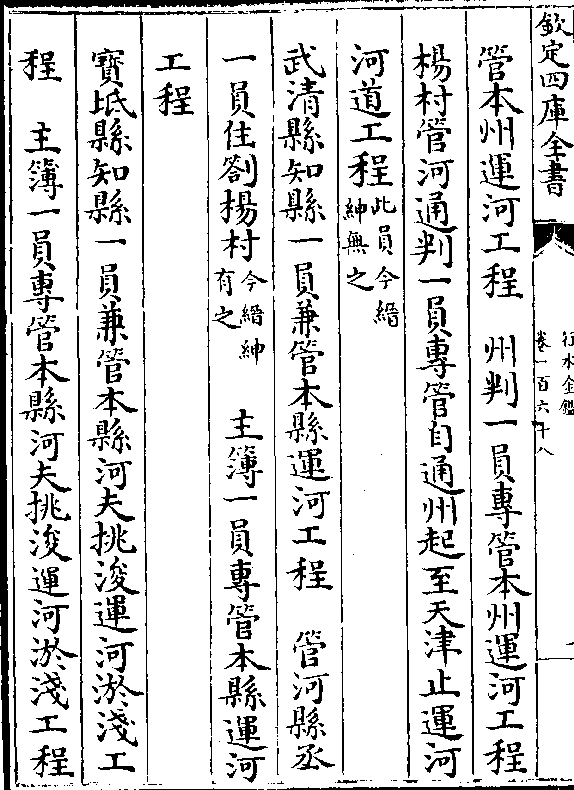 欽定四庫全書
行水金鑑
卷一百六十八
管本州運河工程　州判一員專管本州運河工程
楊村管河通判一員專管自通州起至天津止運河
河道工程此員今縉紳無之
武清縣知縣一員兼管本縣運河工程　管河縣丞
一員住劄楊村今縉紳有之　主簿一員專管本縣運河
工程
寶坻縣知縣一員兼管本縣河夫挑浚運河淤淺工
程　主簿一員專管本縣河夫挑浚運河淤淺工程